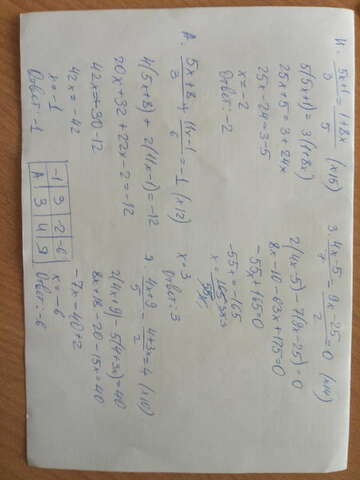 И. 5x+1/3 = 1+8x/5 (x15)
5(5x+1) = 3(1+8x)
25x+5 = 3+24x
25x-24 = 3-5
x = -2
Ответ: -2
А. 5x+8/3 - 11x-1/6 = -1 (x12)
4(5x+8) + 2(11x-1) = -12
20x+32+22x-2 = -12
42x = -30-12
42x = -42
x = -1
Ответ: -1
3. 4x-5/7 = 9x-25/2 = 0 (x14)
2(4x-5) - 7(9x-25) = 0
8x-10-63x+175=0
-55x+165=0
-55x = -165
x = 165/55
x=3
Ответ: 3
9. 4x+9/5 - 4+3x/2 = 4 (x10)
2(4x+9) - 5(4+3x) = 40
8x+18-20-15x = 40
-7x = 40+2
x = -6
Ответ: -6
-1 3 -2 -6
А 3 4 9